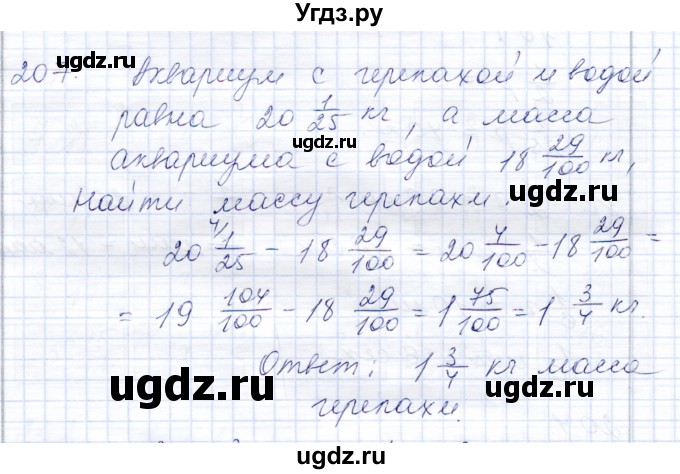 Угдз.ру
207. Аквариум с черепахой и водой
равна 20 1/25 кг, а масса
аквариума с водой 18 29/100 кг,
Найти массу черепахи.
20 1/25 4/ - 18 29/100 = 20 4/100 - 18 29/100 =
= 19 104/100 - 18 29/100 = 1 75/100 = 1 3/4 кг.
Ответ: 1 3/4 кг масса
черепахи.
ugdz.ru
ugdz.ru
ugdz.ru
ugdz.ru
ugdz.ru
ugdz.ru
ugdz.ru
ugdz.ru